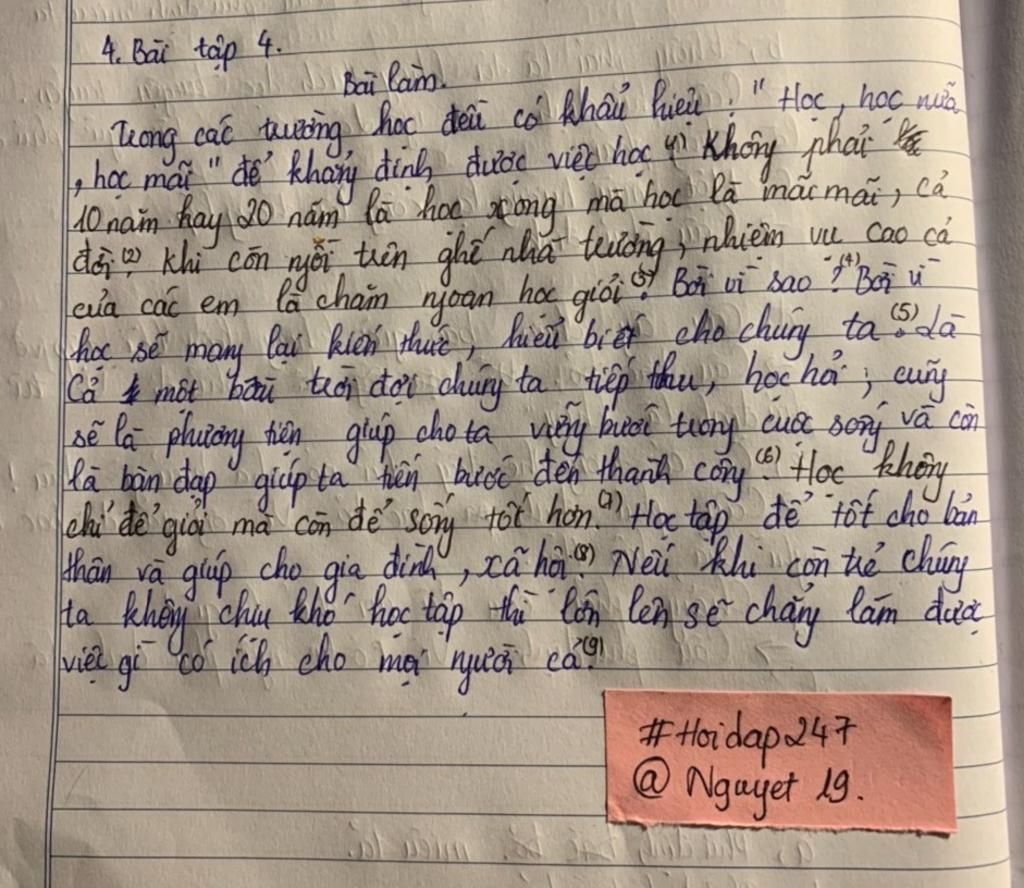 4. Bài tập 4.
Bài làm.
Trong các trường học đều có khẩu hiệu : "Học, học nữa
, học mãi" để khẳng định được việc học (1) Không phải
10 năm hay 20 năm là học xong mà học là mãi mãi, cả
đời.(2) Khi còn ngồi trên ghế nhà trường, nhiệm vụ cao cả
của các em là chăm ngoan học giỏi(3). Bởi vì sao ?(4) Bởi vì
học sẽ mang lại kiến thức, hiểu biết cho chúng ta.(5) Là
Cả một bầu trời đợi chúng ta tiếp thu, học hỏi, cũng
sẽ là phương tiện giúp cho ta vững bước trong cuộc sống và còn
là bàn đạp giúp ta tiến bước đến thành công.(6) Học không
chỉ để giỏi mà còn để sống tốt hơn.(7) Học tập để tốt cho bản
thân và giúp cho gia đình, xã hội.(8) Nếu khi còn trẻ chúng
ta không chịu khó học tập thì lớn lên sẽ chẳng làm được
việc gì có ích cho mọi người cả.(9)
#Hoidap247
@ Nguyet 19.